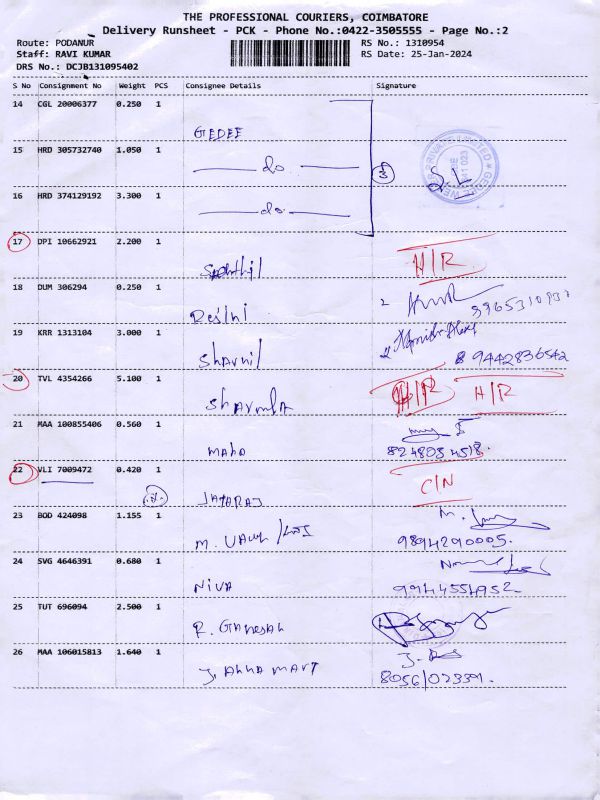 THE PROFESSIONAL COURIERS, COIMBATORE
Delivery Runsheet - PCK - Phone No.:0422-3505555 - Page No.:2
Route: PODANUR
Staff: RAVI KUMAR
DRS No.: DCJB131095402
RS No.: 1310954
RS Date: 25-Jan-2024
S No Consignment No Weight PCS Consignee Details Signature
14 CGL 20006377 0.250 1
GEDEE
15 HRD 305732740 1.050 1
do
3
16 HRD 374129192 3.300 1
do
17 DPI 10662921 2.200 1
Senthil H/R
18 DUM 306294 0.250 1
Reshi
19 KRR 1313104 3.000 1
Sharmil 9442836542
20 TVL 4354266 5.100 1
Sharmila H/R H/R
21 MAA 100855406 0.560 1
Maha
22 VLI 7009472 0.420 1
JAYARAJ C/N
23 BOD 424098 1.155 1
M. 9894290005.
24 SVG 4646391 0.680 1
NIVA 9944554952.
25 TUT 696094 2.500 1
R. GANESAN
26 MAA 106015813 1.640 1
J. ANNA MARY